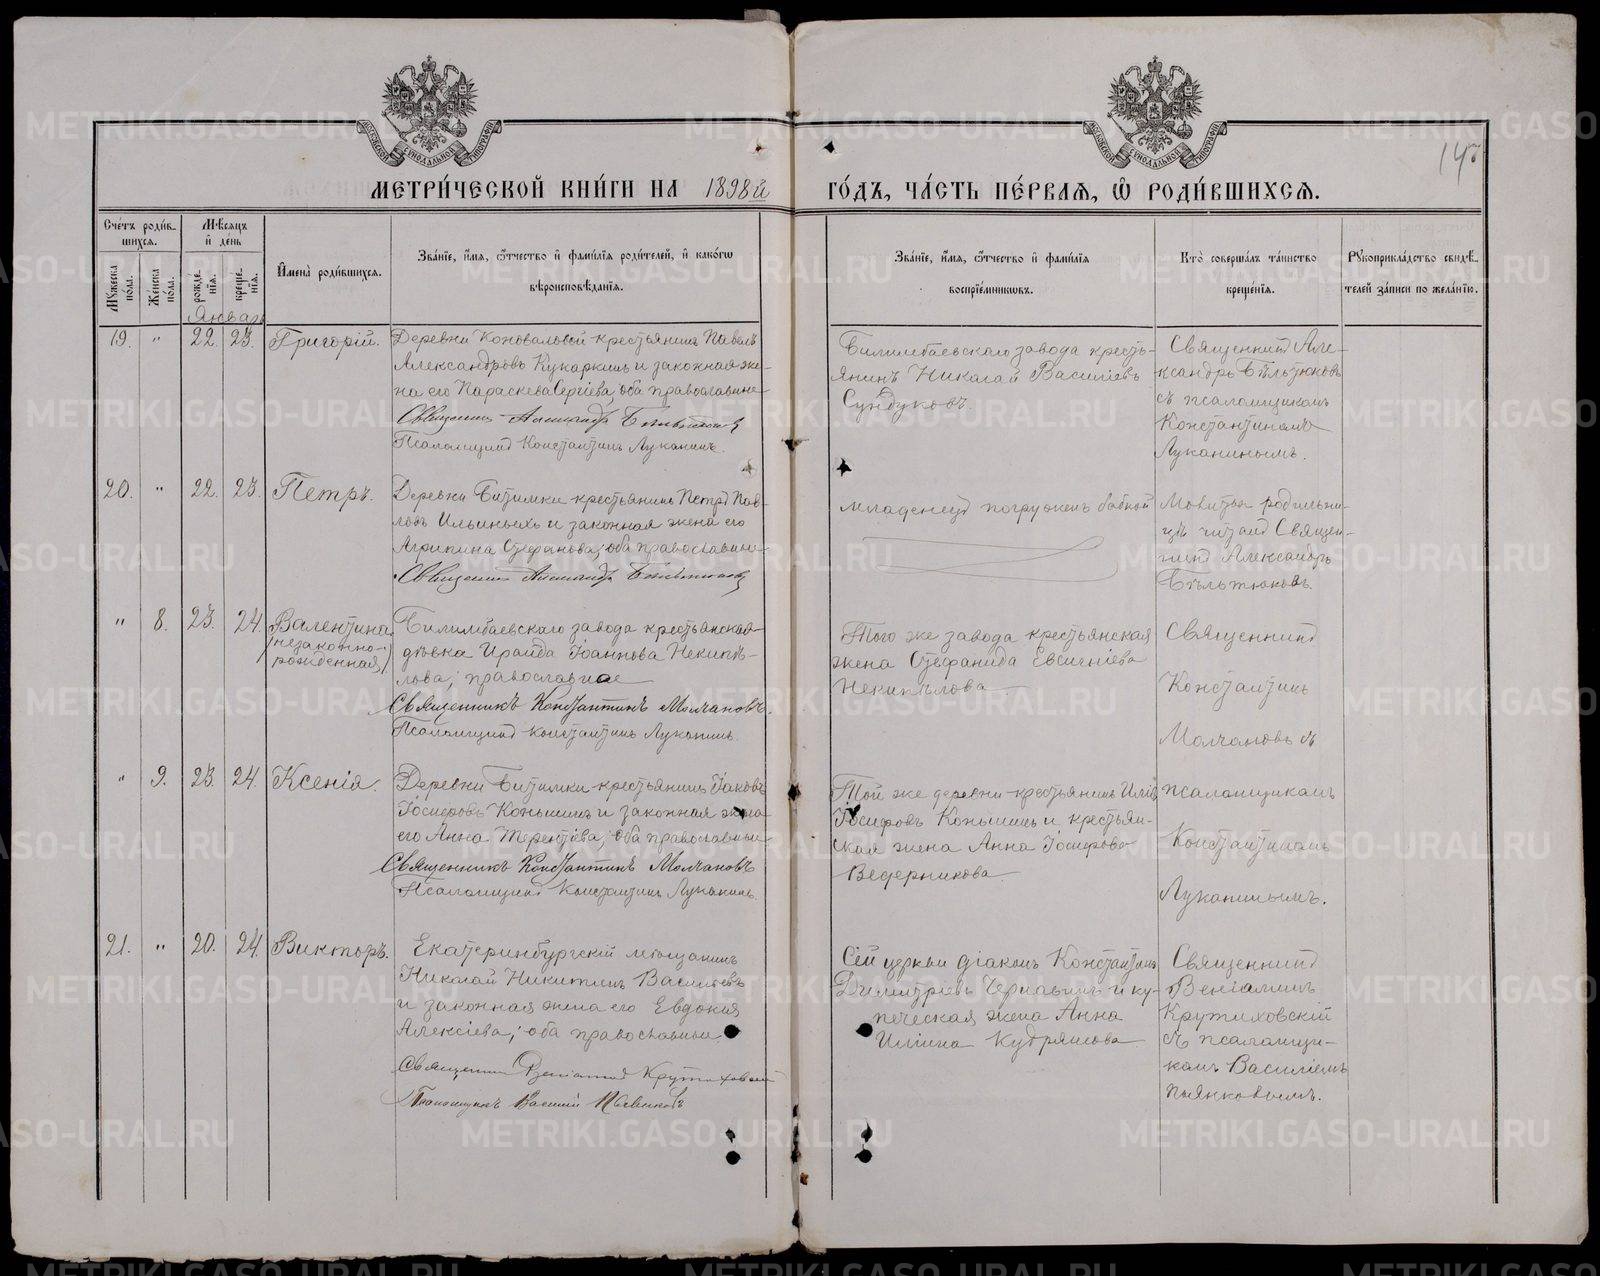 МЕТРИ́ЧЕСКОЙ КНИ́ГИ НА 1898й ГО́ДЪ, ЧА́СТЬ ПЕ́РВАЯ, Ѽ РОДИ́ВШИХСЯ.
Сче́тъ роди́в-
шихся.
Мѣсяцъ
и день
Мꙋжеска
по́ла.
Же́нска
по́ла.
рожде́-
нїя.
креще́-
нїя.
Имена̀ роди́вшихся.
Зва́нїе, и́мя, ѻ҆́тчество и҆ фами́лїя роди́телей, и҆ како́гѡ
вѣроисповѣ́данїя.
Зва́нїе, и́мя, ѻ҆́тчество и҆ фами́лїя
воспрїе́мникѡвъ.
Кто̀ соверша́лъ та́инство
креще́нїя.
Рꙋкоприкла́дство свидѣ́-
телей за́писи по жела́нїю.
Январь
19. " 22. 23. Григорій.
Деревни Коноваловой крестьянинъ Павелъ
Александровъ Кукаркинъ и законная же-
на его Параскева Сергіева, оба православные
Священникъ Александръ Бѣльтюковъ
Псаломщикъ Константинъ Луканинъ.
Билимбаевскаго завода кресть-
янинъ Николай Василіевъ
Сундуковъ.
Священникъ Але-
ксандръ Бѣльтюковъ
съ псаломщикомъ
Константиномъ
Луканинымъ.
20. " 22. 23. Петръ.
Деревни Битимки крестьянинъ Петръ Пав-
ловъ Ильиныхъ и законная жена его
Агрипина Стефанова; оба православные
Священникъ Александръ Бѣльтюковъ
младенецъ погруженъ бабкой
Молитвы родильни-
цѣ читалъ Священ-
никъ Александръ
Бѣльтюковъ.
" 8. 23. 24. Валентина
(незаконно-
рожденная)
Билимбаевскаго завода крестьянская
дѣвка Ираида Іоаннова Некипѣ-
лова, православная
Священникъ Константинъ Молчановъ.
Псаломщикъ Константинъ Луканинъ.
Того же завода крестьянская
жена Стефанида Евсигніева
Некипѣлова
Священникъ
Константинъ
Молчановъ съ
" 9. 23. 24. Ксенія.
Деревни Битимки крестьянинъ Іаковъ
Іосифовъ Коньшинъ и законная жена
его Анна Терентіева; оба православные
Священникъ Константинъ Молчановъ
Псаломщикъ Константинъ Луканинъ.
Той же деревни крестьянинъ Илія
Іосифовъ Коньшинъ и крестьян-
ская жена Анна Іосифова
Ведерникова
псаломщикомъ
Константиномъ
Луканинымъ.
21. " 20. 24. Викторъ.
Екатеринбургскій мѣщанинъ
Николай Никитинъ Васильевъ
и законная жена его Евдокія
Алексіева; оба православные
Священникъ Веніаминъ Крутиховскій
Псаломщикъ Василій Пьянковъ
Сей церкви діаконъ Константинъ
Димитріевъ Чернавинъ и ку-
печеская жена Анна
Иліина Кудряшова
Священникъ
Веніаминъ
Крутиховскій
съ псаломщи-
комъ Василіемъ
Пьянковымъ.
METRIKI.GASO-URAL.RU